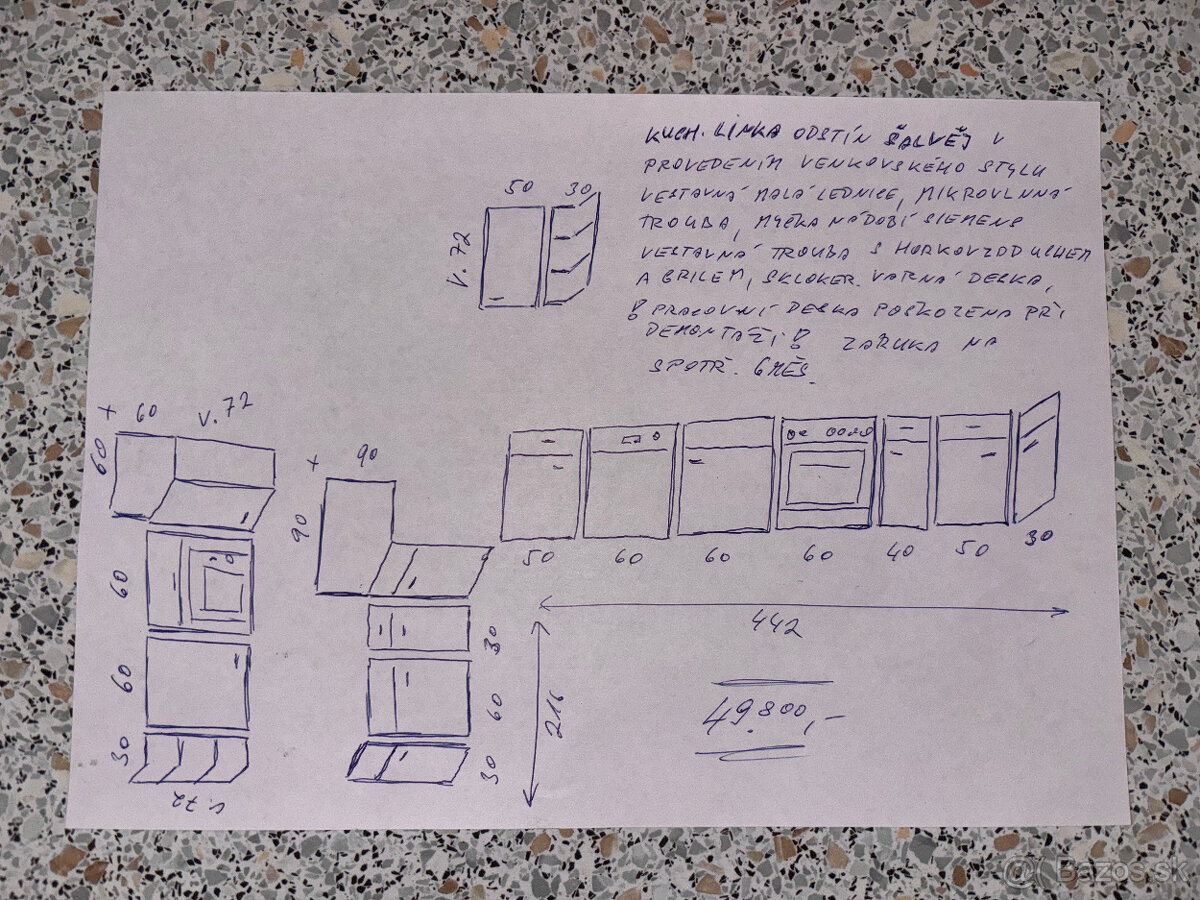 KUCH. LINKA ODSTÍN ŠALVĚJ V
PROVEDENÍM VENKOVSKÉHO STYLU
VESTAVNÁ MALÁ LEDNICE, MIKROVLNNÁ
TROUBA, MYČKA NÁDOBÍ SIEMENS
VESTAVNÁ TROUBA S HORKOVZDUCHEM
A GRILEM, SKLOKER. VARNÁ DESKA,
! PRACOVNÍ DESKA POŠKOZENA PŘI
DEMONTÁŽI! ZÁRUKA NA
SPOTŘ. 6 MĚS.
50 30
V. 72
+ 60 V. 72
60
60
60
30
V. 72
+ 90
90
30
60
30
50 60 60 60 40 50 30
442
216
49.800,-
@ Bazos.sk